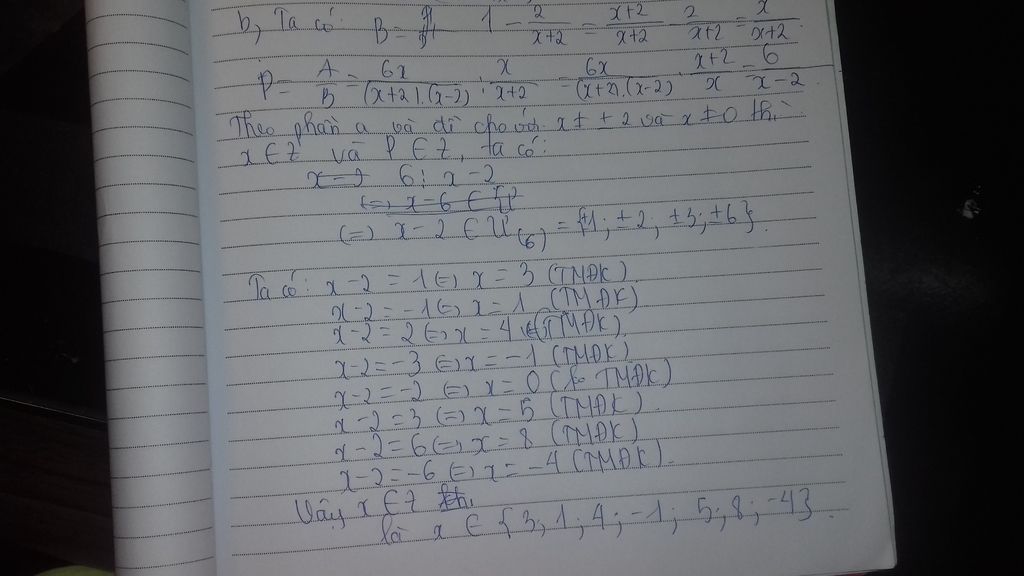 b, Ta có: B = 1 - 2/(x+2) = (x+2)/(x+2) - 2/(x+2) = x/(x+2).
P = A/B = 6x/((x+2).(x-2)) : x/(x+2) = 6x/((x+2).(x-2)) . (x+2)/x = 6/(x-2).
Theo phần a và đề cho với x ≠ ± 2 và x ≠ 0 thì
x ∈ Z và P ∈ Z, ta có:
6 ⋮ x - 2
(=) x - 2 ∈ Ư(6) = {±1; ±2; ±3; ±6}.
Ta có: x - 2 = 1 (=) x = 3 (TMĐK)
x - 2 = -1 (=) x = 1 (TMĐK)
x - 2 = 2 (=) x = 4 (TMĐK)
x - 2 = -3 (=) x = -1 (TMĐK)
x - 2 = -2 (=) x = 0 (K TMĐK)
x - 2 = 3 (=) x = 5 (TMĐK)
x - 2 = 6 (=) x = 8 (TMĐK)
x - 2 = -6 (=) x = -4 (TMĐK).
Vậy x ∈ Z
là x ∈ {3; 1; 4; -1; 5; 8; -4}.